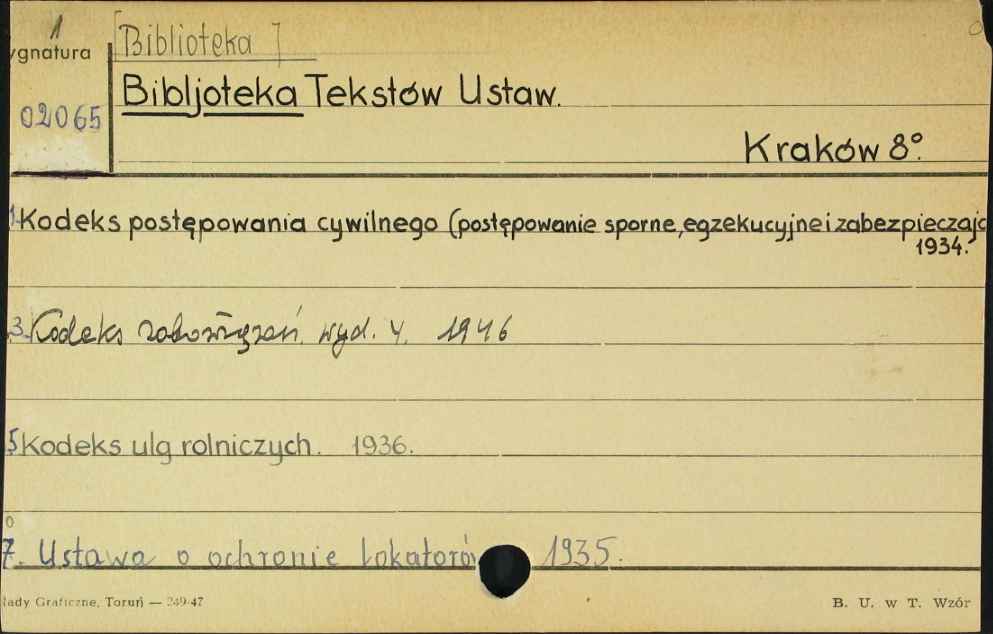 1
[Biblioteka]
ygnatura
Bibljoteka Tekstów Ustaw.
02065
Kraków 8°.
1. Kodeks postępowania cywilnego (postępowanie sporne, egzekucyjne i zabezpieczając
1934.
3. Kodeks zobowiązań. wyd. 4. 1946
5 Kodeks ulg rolniczych. 1936.
7. Ustawa o ochronie lokatorów 1935.
łady Graficzne, Toruń — 249-47
B. U. w T. Wzór